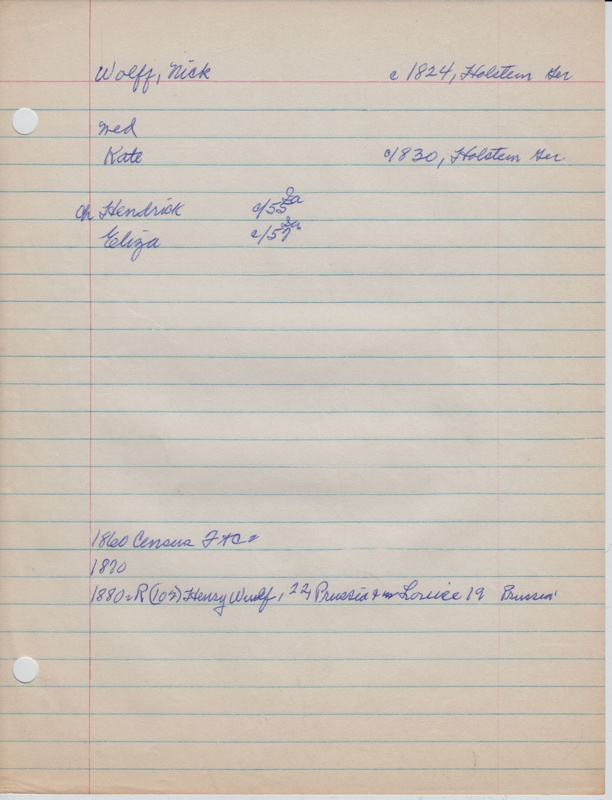 Wolff, Nick c 1824, Holstein Ger
med
Kate c/1830, Holstein Ger
ch Hendrick c/55 Ia
Eliza c/57 Ia
1860 Census
1870
1880 R Henry Wulf, 22, Prussia Louice 19 Prussia